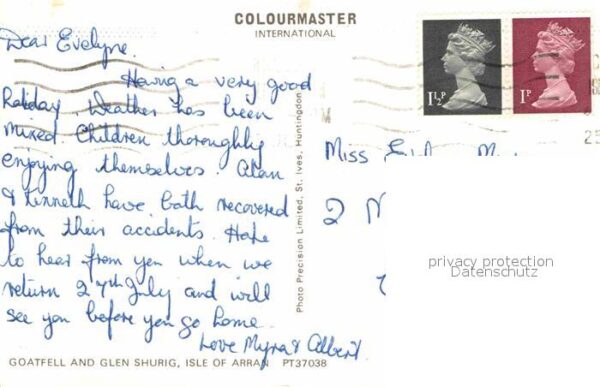 COLOURMASTER
INTERNATIONAL
Dear Evelyne.
Having a very good
holiday. Weather has been
mixed. Children thoroughly
enjoying themselves. Alan
& Kenneth have both recovered
from their accidents. Hope
to hear from you when we
return 27th July and will
see you before you go home.
Love Myra & Albert.
GOATFELL AND GLEN SHURIG, ISLE OF ARRAN PT37038
Photo Precision Limited, St. Ives, Huntingdon
1½P
1P
Miss
2
privacy protection
Datenschutz